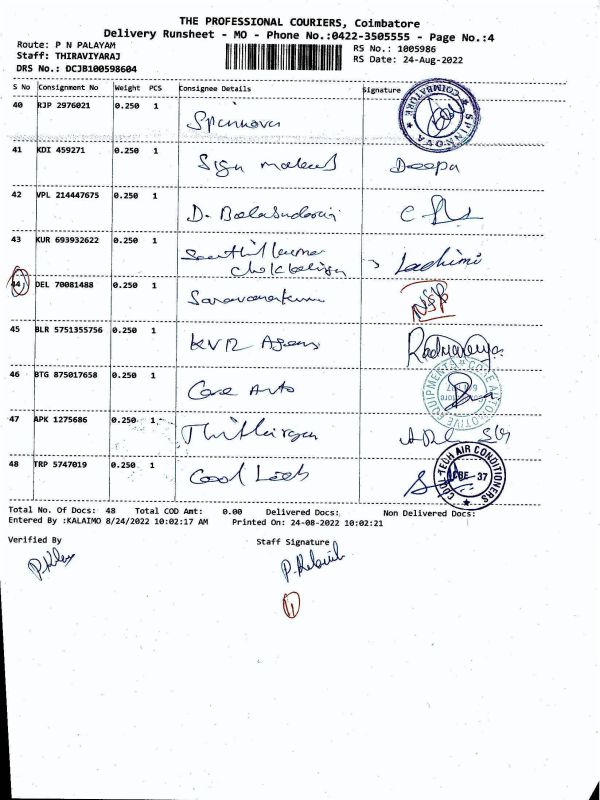 THE PROFESSIONAL COURIERS, Coimbatore
Delivery Runsheet - MO - Phone No.:0422-3505555 - Page No.:4
Route: P N PALAYAM
Staff: THIRAVIYARAJ
DRS No.: DCJB100598604
RS No.: 1005986
RS Date: 24-Aug-2022
S No Consignment No Weight PCS Consignee Details Signature
40 RJP 2976021 0.250 1 Spinnova
COIMBATORE SPINNOVA
41 KDI 459271 0.250 1 Sign Deepa
42 VPL 214447675 0.250 1 D. Balasundaram
43 KUR 693932622 0.250 1 Senthil Kumar
44 DEL 70081488 0.250 1 Saravanakumar
45 BLR 5751355756 0.250 1 KVR Agens
46 BTG 875017658 0.250 1 Core Auto
CORE AUTOMOTIVE EQUIPMENTS
47 APK 1275686 0.250 1
48 TRP 5747019 0.250 1 Cool
TECH AIR CONDITIONERS
CBE 37
Total No. Of Docs: 48 Total COD Amt: 0.00 Delivered Docs: Non Delivered Docs:
Entered By :KALAIMO 8/24/2022 10:02:17 AM Printed On: 24-08-2022 10:02:21
Verified By Staff Signature